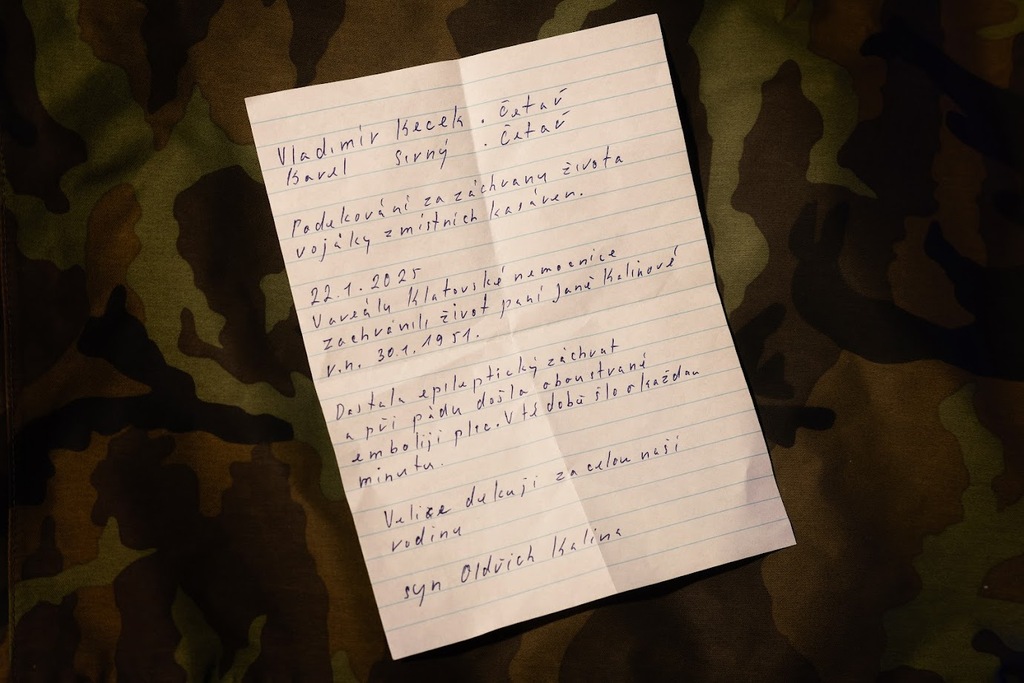 Vladimír Kecek . četař
Karel Sirný . četař
Poďekování za záchranu života
vojáky z místních kasáren.
22.1.2025
V areálu Klatovské nemocnice
zachránili život paní Janě Kalinové
r.n. 30.1.1951.
Dostala epileptický záchvat
a při pádu došlo oboustrané
emboliji plic. V té době šlo o každou
minutu.
Velice ďekuji za celou naši
rodinu
syn Oldřich Kalina